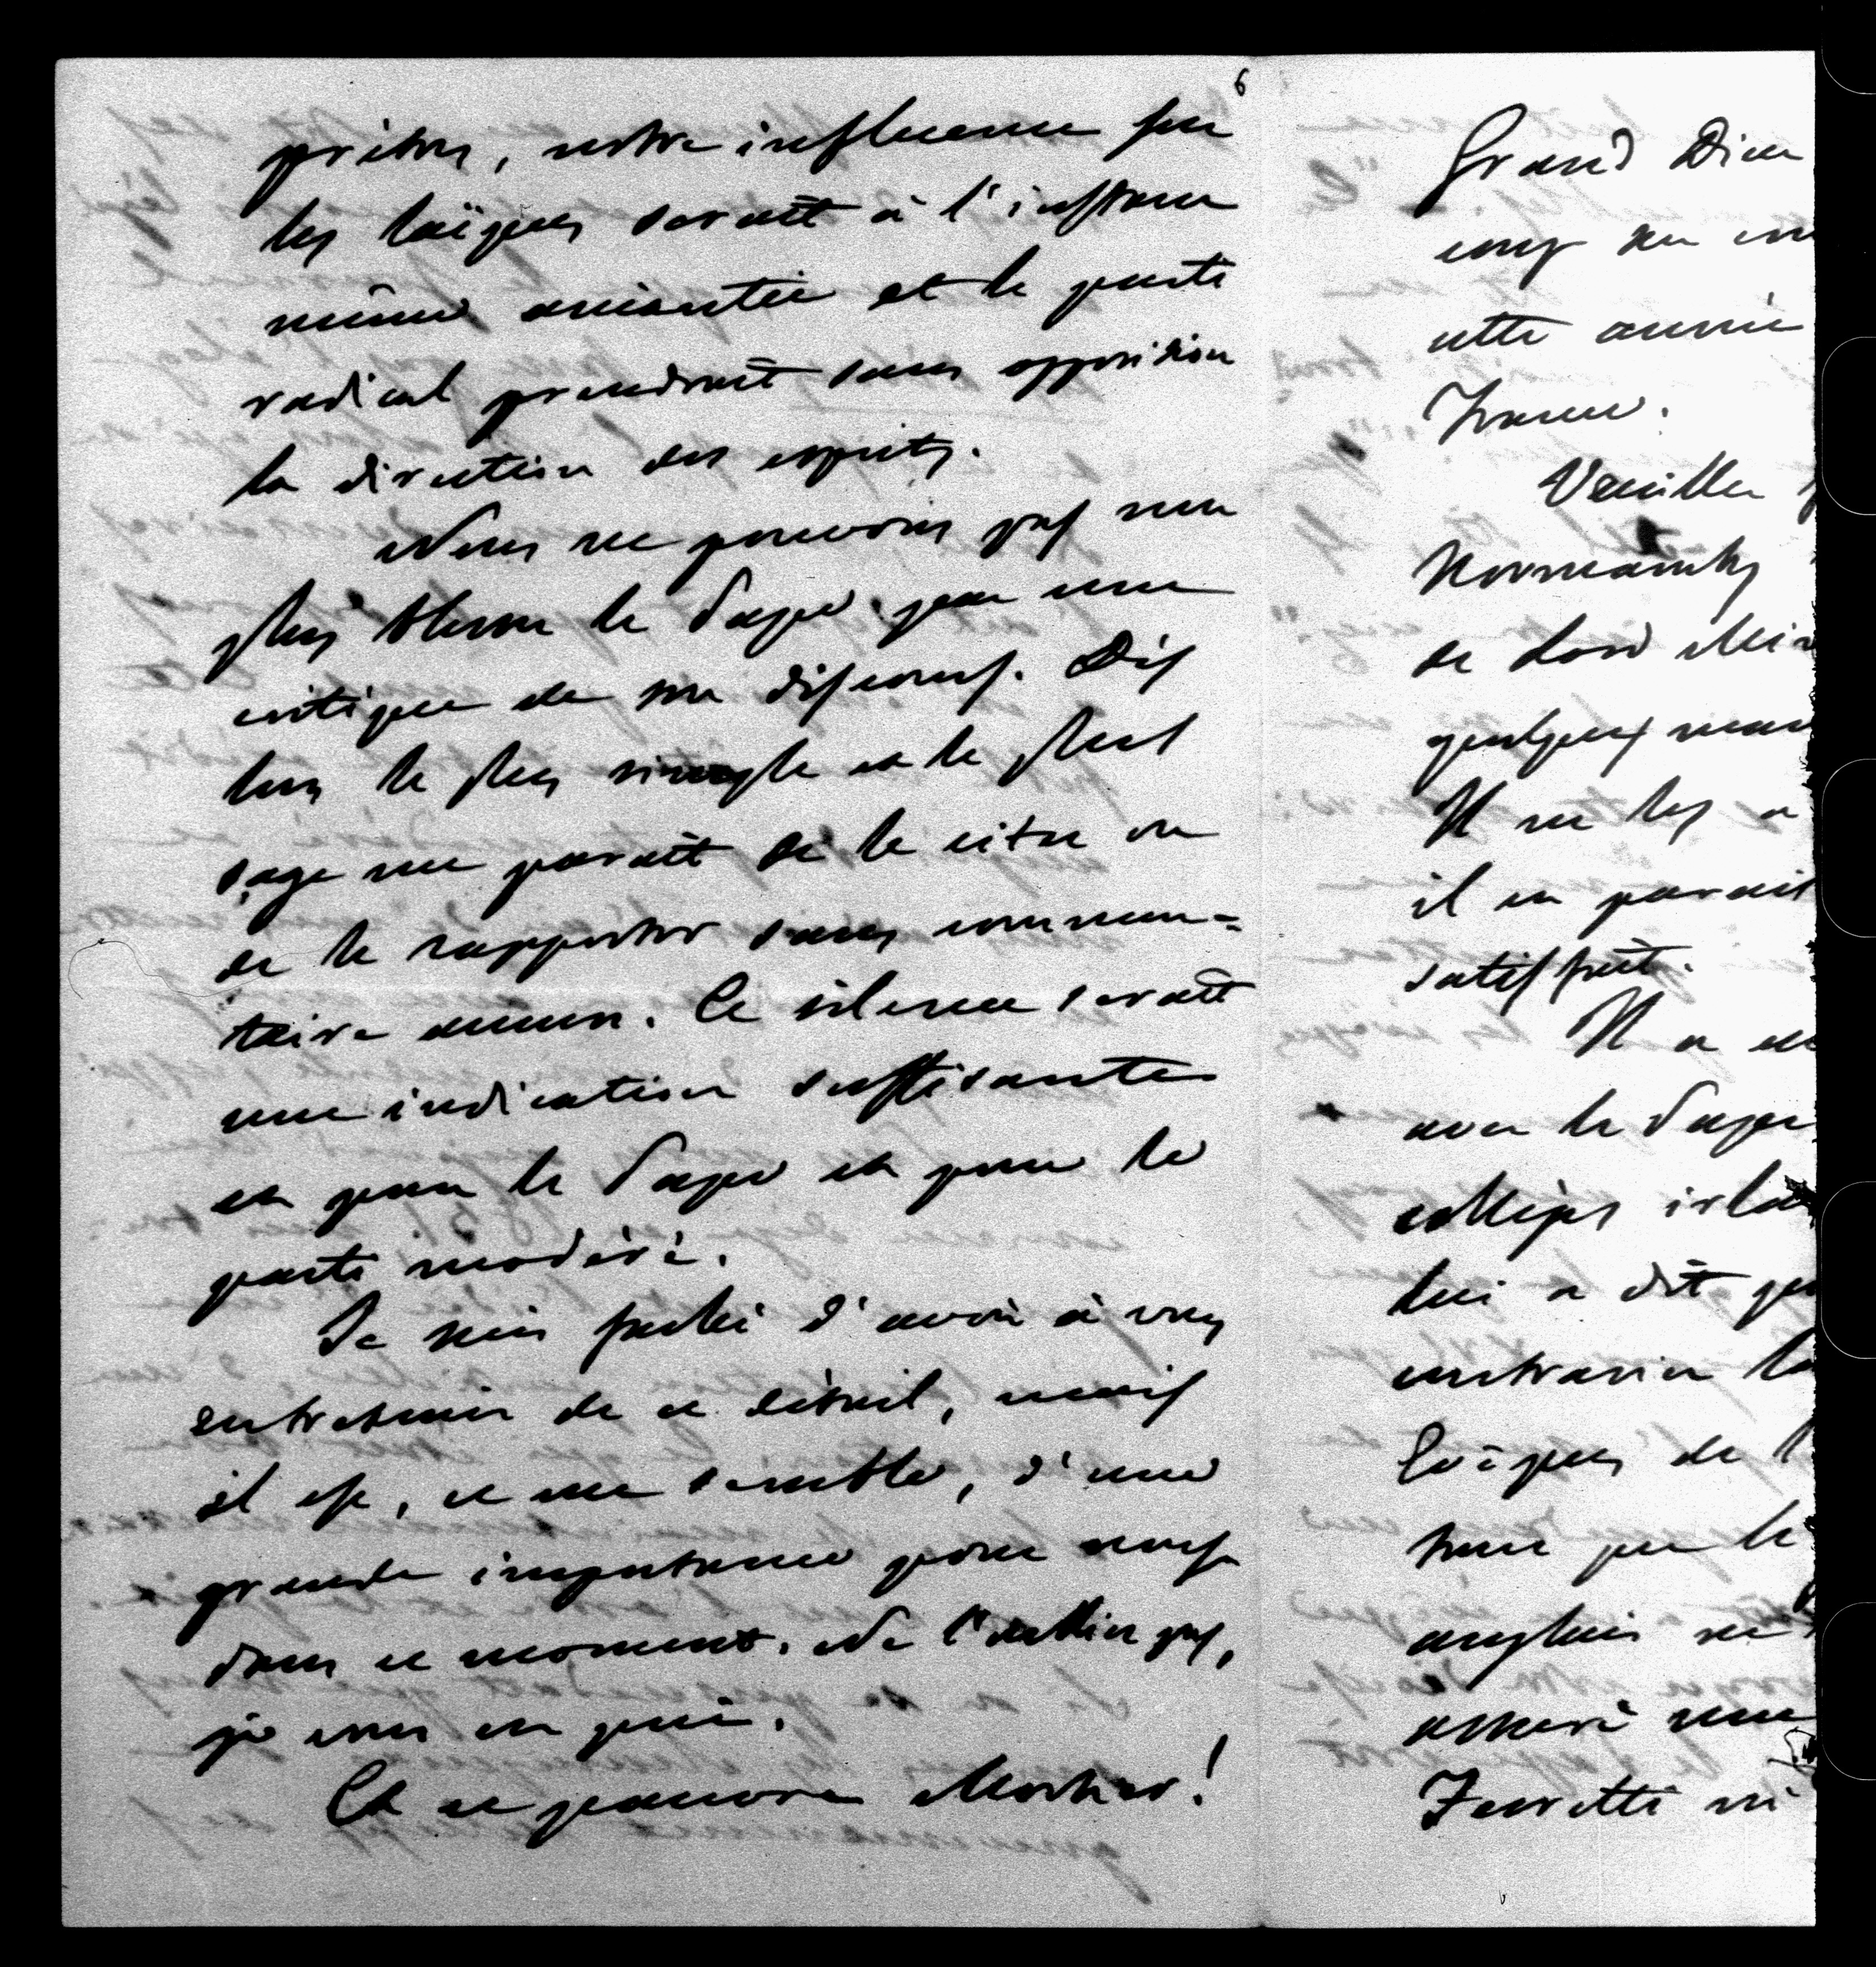 6
prêtres, notre influence sur
les laïques serait à l'instant
même anéantie et le parti
radical prendrait sans opposition
la direction des esprits.
Nous ne pouvons pas non
plus blesser le Pape par une
critique de son discours. Dis
lors le plus simple et le plus
sage me paraît de le citer ou
de le rapporter sans commen=
taire aucun. Ce silence serait
une indication suffisante
et pour le Pape et pour le
parti modéré.
Je suis fâché d'avoir à vous
entretenir de ce détail, mais
il est, ce me semble, d'une
grande importance pour nous
dans ce moment. Ne l'oubliez pas,
je vous en prie.
Et ce pauvre Mortier!
Grand Dieu
cette année
France.
Veuillez
Normanby
de Lord Min
quelques
Il ne les a
il en parait
satisfait.
Il a
avec le Pape
collèges irla
lui a dit que
contrarier
Evêques de l
que le
anglais ne
assuré
Ferretti ni